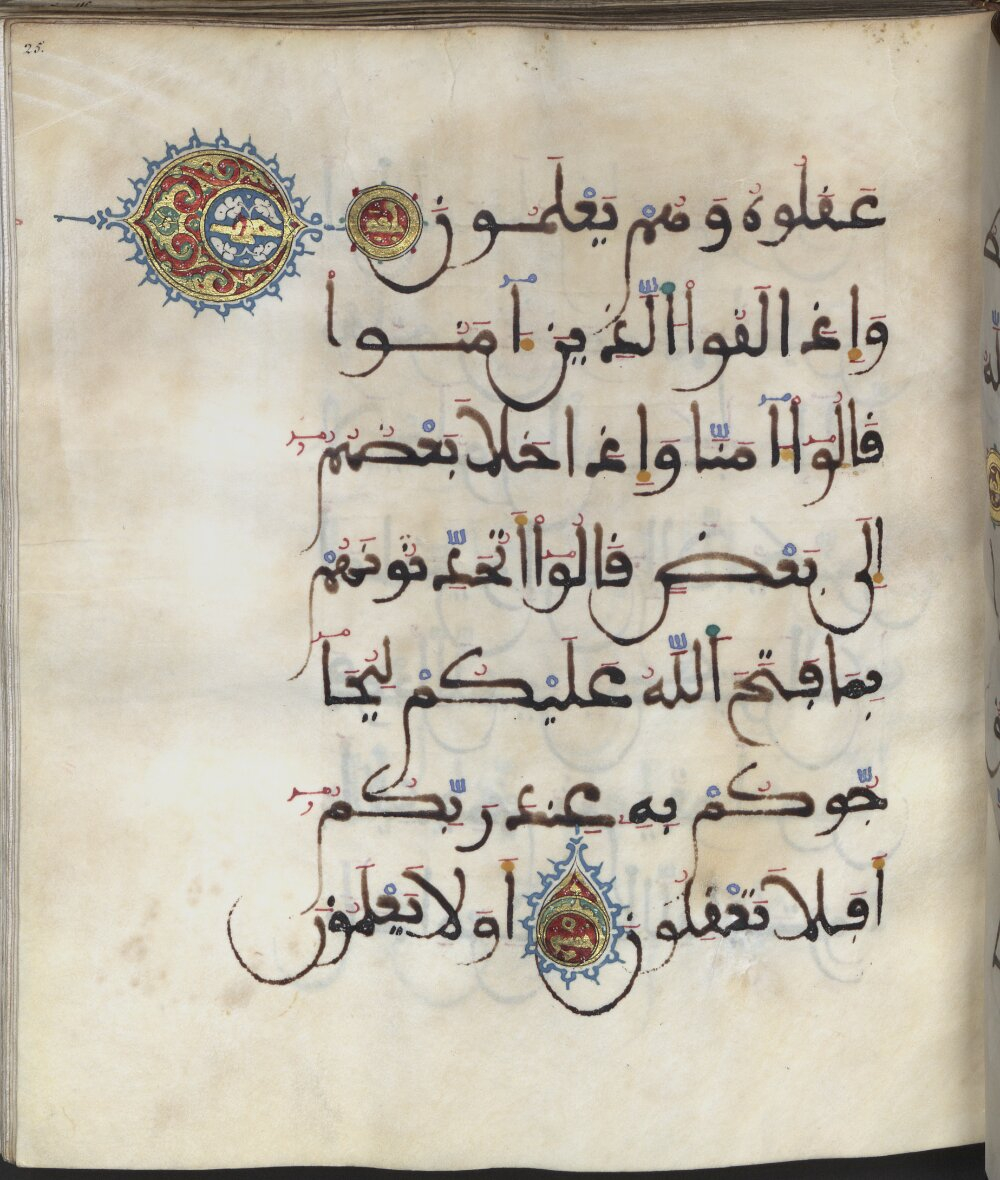 25.
عَقَلُوهُ وَهُمْ يَعْلَمُونَ
وَإِذَا لَقُوا۟ الَّذِينَ ءَامَنُوا
قَالُوٓا۟ ءَامَنَّا وَإِذَا خَلَا بَعْضُهُمُۥٓ
إِلَىٰ بَعْضٍ قَالُوٓا۟ أَتُحَدِّثُونَهُمْ
بِمَا فَتَحَ اَللَّهُ عَلَيْكُمْ لِيُحَا
جُّوكُمْ بِهِ عِندَ رَبِّكُمُۥٓ
أَفَلَا تَعْقِلُونَ أَوَلَا يَعْلَمُونَ